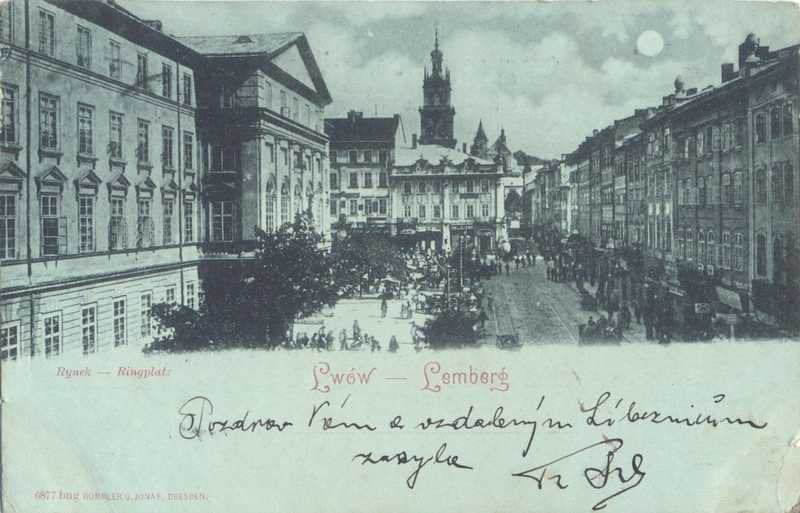 Rynek — Ringplatz
Lwów — Lemberg
Pozdrav Vám a vzdáleným
zasýla
6877 bng RÖMMLER & JONAS, DRESDEN.